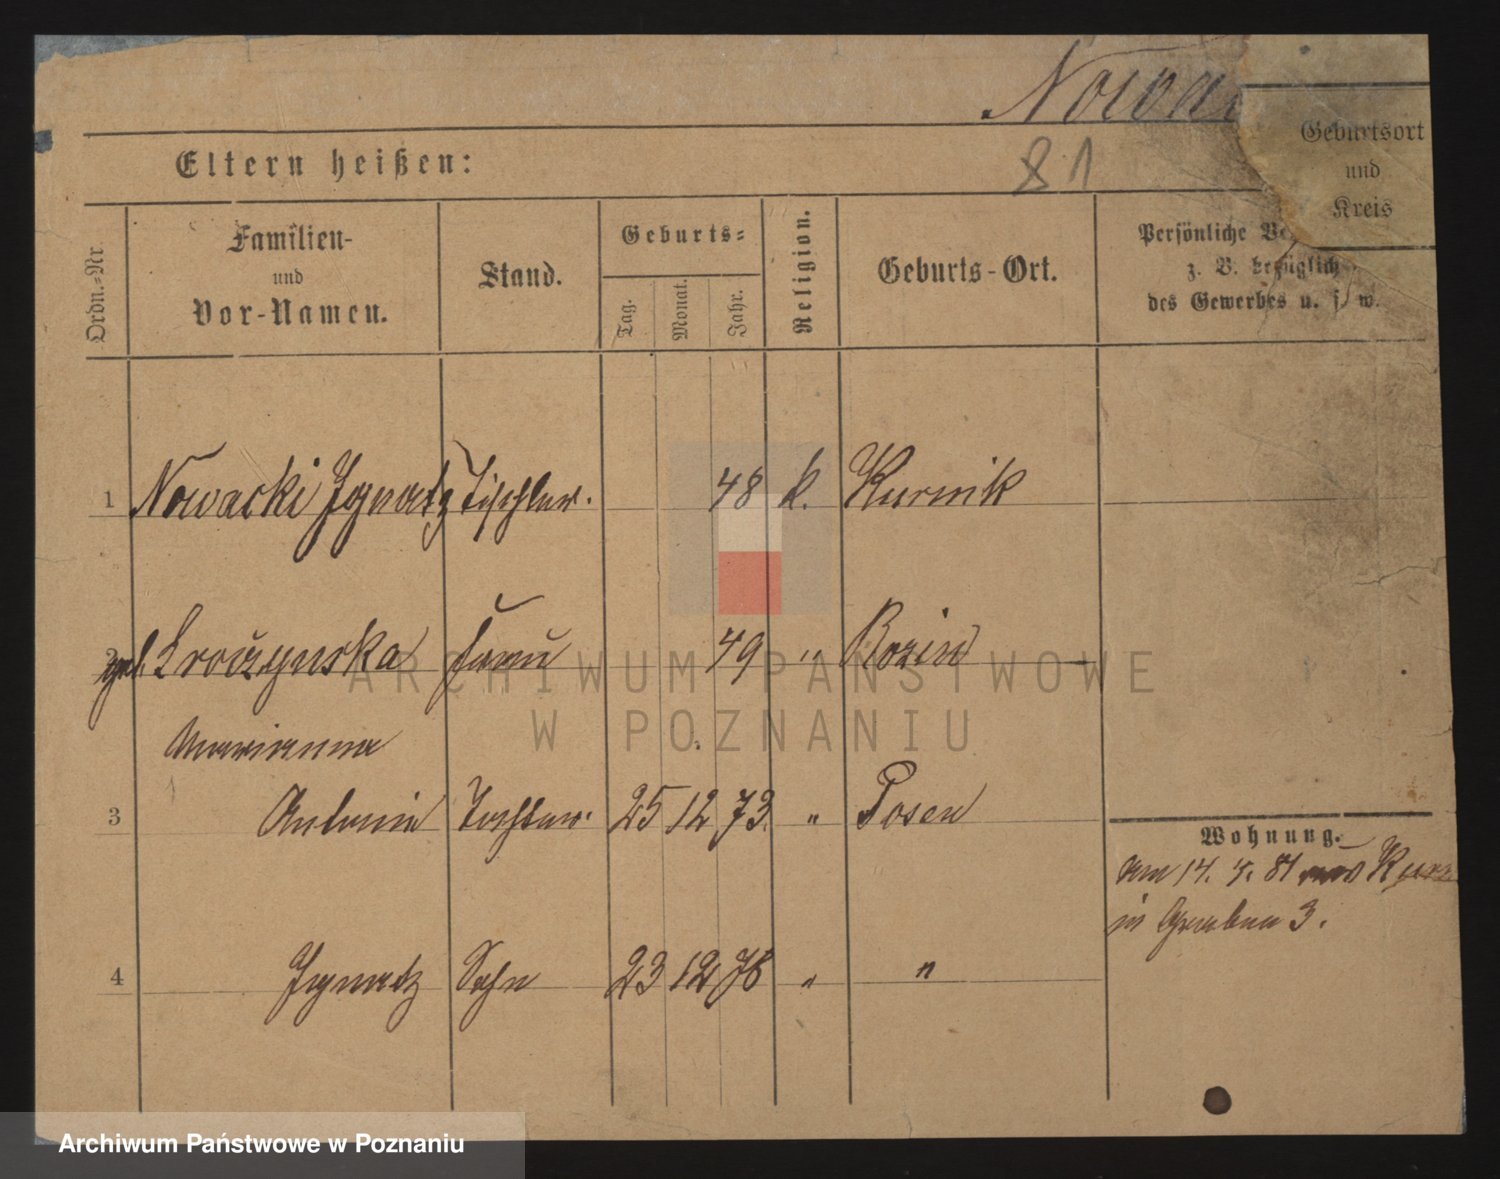 Nowa
Geburtsort
und
Kreis
Eltern heißen:
81
Ordn.-Nr.
Familien-
und
Vor-Namen.
Stand.
Geburts-
Tag.
Monat.
Jahr.
Religion.
Geburts-Ort.
Persönliche
z. B. bezüglich
des Gewerbes u. s. w.
1 Nowacki Ignatz Tischler. 48 k. Kurnik
2 geb. Frau 49 " Rozin
Marianna
3 Antonie Tochter. 25 12 73. " Posen
4 Ignatz Sohn 23 12 78 " "
Wohnung.
am 14. 4. 81 aus Kurn
in Graben 3.
ARCHIWUM PAŃSTWOWE
W POZNANIU
Archiwum Państwowe w Poznaniu